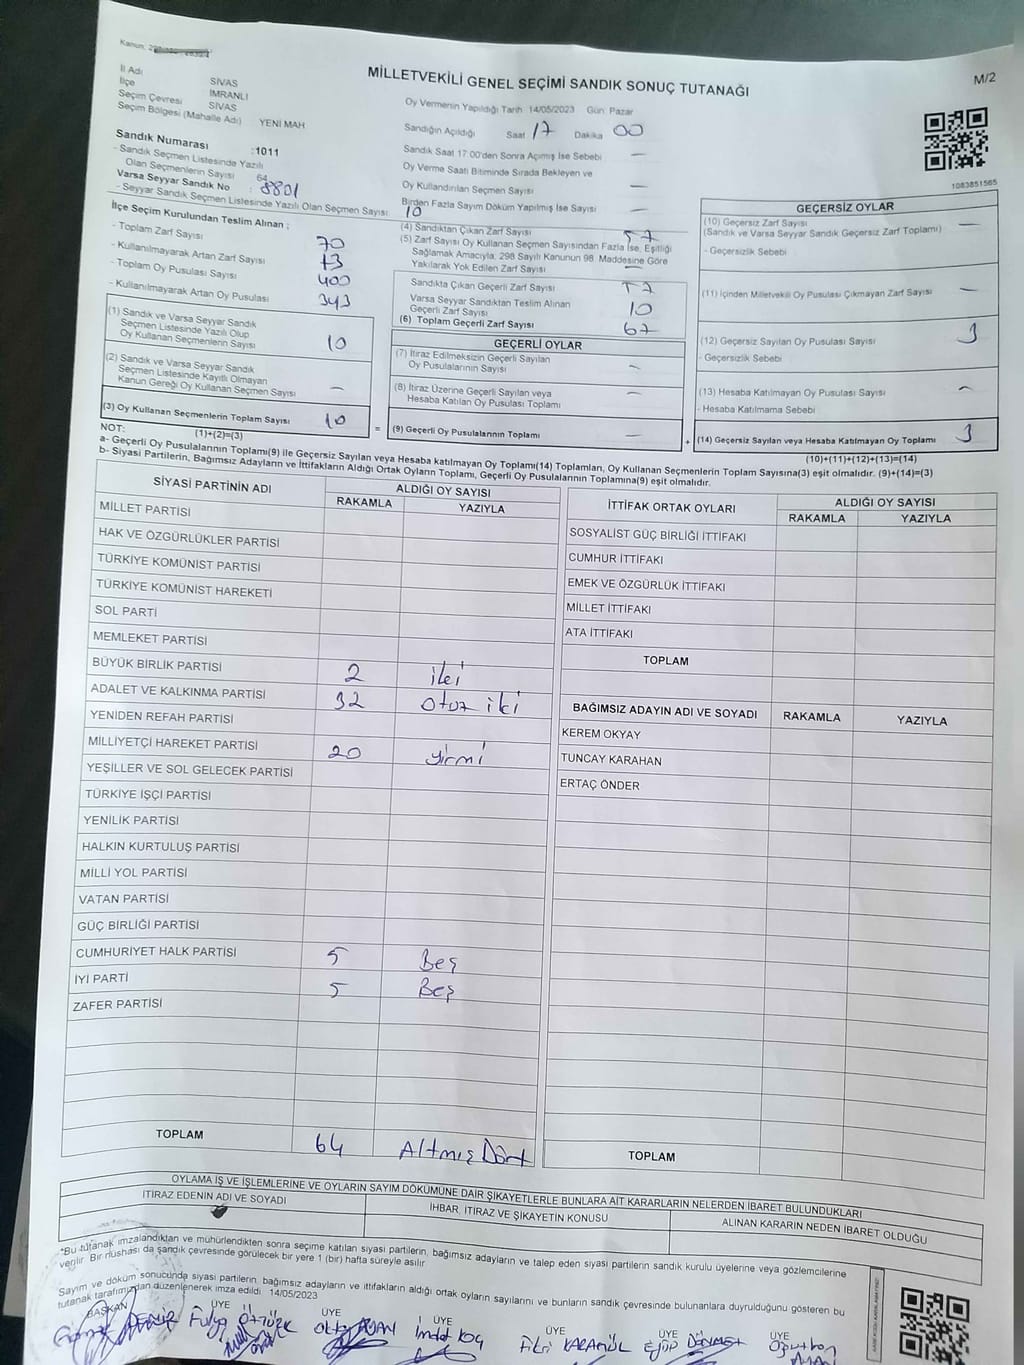 MİLLETVEKİLİ GENEL SEÇİMİ SANDIK SONUÇ TUTANAĞI
M/2
Kanun:
İl Adı SİVAS
İlçe İMRANLI
Seçim Çevresi SİVAS
Seçim Bölgesi (Mahalle Adı) YENİ MAH
Sandık Numarası :1011
- Sandık Seçmen Listesinde Yazılı
Olan Seçmenlerin Sayısı 64
Varsa Seyyar Sandık No : 8801
- Seyyar Sandık Seçmen Listesinde Yazılı Olan Seçmen Sayısı: 10
Oy Vermenin Yapıldığı Tarih 14/05/2023 Gün: Pazar
Sandığın Açıldığı Saat 17 Dakika 00
Sandık Saat 17:00'den Sonra Açımış İse Sebebi —
Oy Verme Saati Bitiminde Sırada Bekleyen ve
Oy Kullandırılan Seçmen Sayısı —
Birden Fazla Sayım Döküm Yapılmış İse Sayısı —
1083851565
İlçe Seçim Kurulundan Teslim Alınan ;
- Toplam Zarf Sayısı 70
- Kullanılmayarak Artan Zarf Sayısı 13
- Toplam Oy Pusulası Sayısı 400
- Kullanılmayarak Artan Oy Pusulası 343
(1) Sandık ve Varsa Seyyar Sandık
Seçmen Listesinde Yazılı Olup
Oy Kullanan Seçmenlerin Sayısı 10
(2) Sandık ve Varsa Seyyar Sandık
Seçmen Listesinde Kayıtlı Olmayan
Kanun Gereği Oy Kullanan Seçmen Sayısı —
(3) Oy Kullanan Seçmenlerin Toplam Sayısı 10
(1)+(2)=(3)
(4) Sandıktan Çıkan Zarf Sayısı 57
(5) Zarf Sayısı Oy Kullanan Seçmen Sayısından Fazla İse, Eşitliği
Sağlamak Amacıyla; 298 Sayılı Kanunun 98. Maddesine Göre
Yakılarak Yok Edilen Zarf Sayısı —
Sandıkta Çıkan Geçerli Zarf Sayısı 57
Varsa Seyyar Sandıktan Teslim Alınan
Geçerli Zarf Sayısı 10
(6) Toplam Geçerli Zarf Sayısı 67
GEÇERLİ OYLAR
(7) İtiraz Edilmeksizin Geçerli Sayılan
Oy Pusulalarının Sayısı —
(8) İtiraz Üzerine Geçerli Sayılan veya
Hesaba Katılan Oy Pusulası Toplamı —
= (9) Geçerli Oy Pusulalarının Toplamı —
GEÇERSİZ OYLAR
(10) Geçersiz Zarf Sayısı —
(Sandık ve Varsa Seyyar Sandık Geçersiz Zarf Toplamı)
- Geçersizlik Sebebi
(11) İçinden Milletvekili Oy Pusulası Çıkmayan Zarf Sayısı —
(12) Geçersiz Sayılan Oy Pusulası Sayısı 3
- Geçersizlik Sebebi
(13) Hesaba Katılmayan Oy Pusulası Sayısı —
- Hesaba Katılmama Sebebi
+ (14) Geçersiz Sayılan veya Hesaba Katılmayan Oy Toplamı 3
(10)+(11)+(12)+(13)=(14)
NOT:
a- Geçerli Oy Pusulalarının Toplamı(9) ile Geçersiz Sayılan veya Hesaba katılmayan Oy Toplamı(14) Toplamları, Oy Kullanan Seçmenlerin Toplam Sayısına(3) eşit olmalıdır. (9)+(14)=(3)
b- Siyasi Partilerin, Bağımsız Adayların ve İttifakların Aldığı Ortak Oyların Toplamı, Geçerli Oy Pusulalarının Toplamına(9) eşit olmalıdır.
SİYASİ PARTİNİN ADI ALDIĞI OY SAYISI
RAKAMLA YAZIYLA
MİLLET PARTİSİ
HAK VE ÖZGÜRLÜKLER PARTİSİ
TÜRKİYE KOMÜNİST PARTİSİ
TÜRKİYE KOMÜNİST HAREKETİ
SOL PARTİ
MEMLEKET PARTİSİ
BÜYÜK BİRLİK PARTİSİ 2 iki
ADALET VE KALKINMA PARTİSİ 32 Otuz iki
YENİDEN REFAH PARTİSİ
MİLLİYETÇİ HAREKET PARTİSİ 20 yirmi
YEŞİLLER VE SOL GELECEK PARTİSİ
TÜRKİYE İŞÇİ PARTİSİ
YENİLİK PARTİSİ
HALKIN KURTULUŞ PARTİSİ
MİLLİ YOL PARTİSİ
VATAN PARTİSİ
GÜÇ BİRLİĞİ PARTİSİ
CUMHURİYET HALK PARTİSİ 5 Beş
İYİ PARTİ 5 Beş
ZAFER PARTİSİ
TOPLAM 64 Altmış Dört
İTTİFAK ORTAK OYLARI ALDIĞI OY SAYISI
RAKAMLA YAZIYLA
SOSYALİST GÜÇ BİRLİĞİ İTTİFAKI
CUMHUR İTTİFAKI
EMEK VE ÖZGÜRLÜK İTTİFAKI
MİLLET İTTİFAKI
ATA İTTİFAKI
TOPLAM
BAĞIMSIZ ADAYIN ADI VE SOYADI RAKAMLA YAZIYLA
KEREM OKYAY
TUNCAY KARAHAN
ERTAÇ ÖNDER
TOPLAM
OYLAMA İŞ VE İŞLEMLERİNE VE OYLARIN SAYIM DÖKÜMÜNE DAİR ŞİKAYETLERLE BUNLARA AİT KARARLARIN NELERDEN İBARET BULUNDUKLARI
İTİRAZ EDENİN ADI VE SOYADI İHBAR, İTİRAZ VE ŞİKAYETİN KONUSU ALINAN KARARIN NEDEN İBARET OLDUĞU
*Bu tutanak imzalandıktan ve mühürlendikten sonra seçime katılan siyasi partilerin, bağımsız adayların ve talep eden siyasi partilerin sandık kurulu üyelerine veya gözlemcilerine
verilir. Bir nüshası da sandık çevresinde görülecek bir yere 1 (bir) hafta süreyle asılır
Sayım ve döküm sonucında siyasi partilerin, bağımsız adayların ve ittifakların aldığı ortak oyların sayılarını ve bunların sandık çevresinde bulunanlara duyrulduğunu gösteren bu
tutanak tarafımızdan düzenlenerek imza edildi. 14/05/2023
BAŞKAN ÜYE ÜYE ÜYE ÜYE ÜYE ÜYE
DEMİR Fulya ÖZTÜRK İmdat Koç Fikri KARAGÜL Eyüp DÖNMEZ